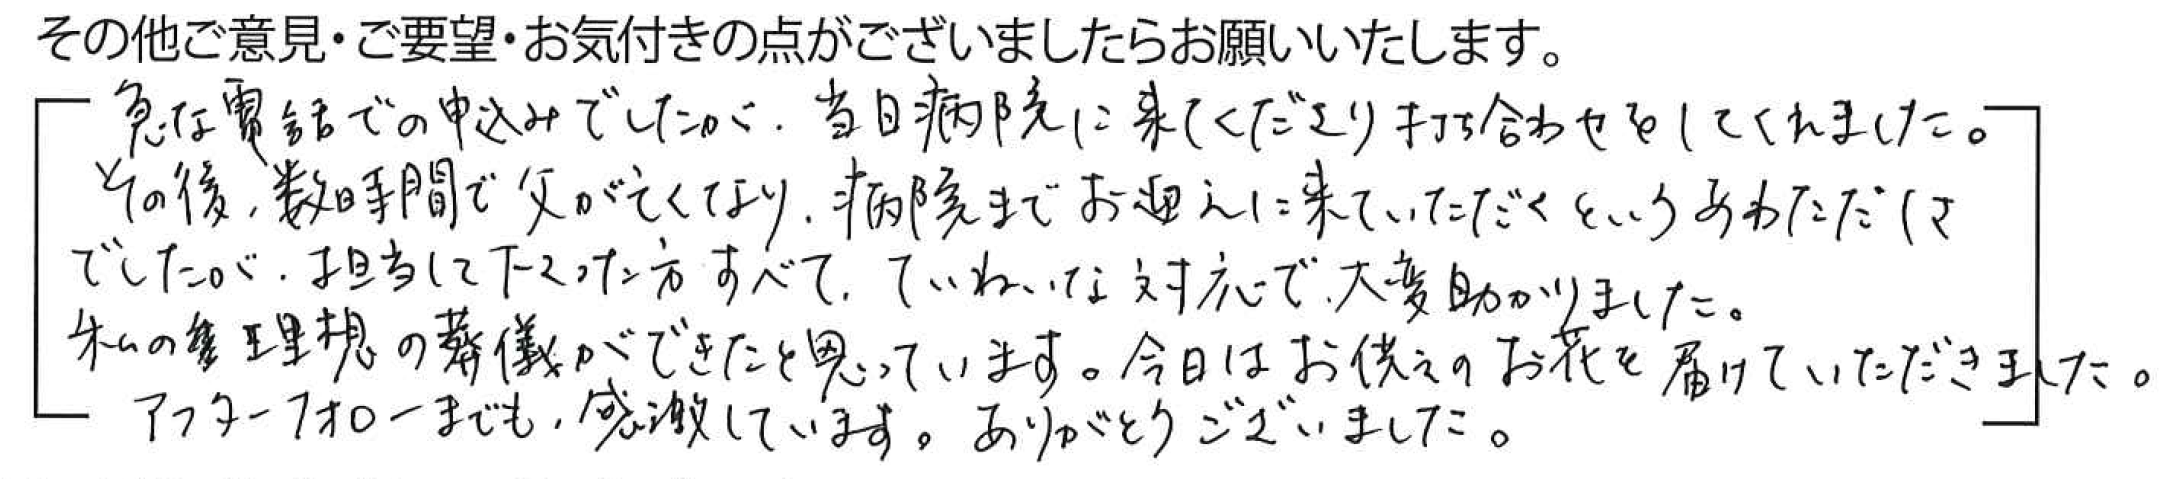 その他ご意見・ご要望・お気付きの点がございましたらお願いいたします。
急な電話での申込みでしたが、当日病院に来てくださり打ち合わせをしてくれました。
その後、数時間で父が亡くなり、病院までお迎えに来ていただくというあわただしさ
でしたが、担当して下さった方すべて、ていねいな対応で、大変助かりました。
私の理想の葬儀ができたと思っています。今日はお供えのお花を届けていただきました。
アフターフォローまでも、感激しています。ありがとうございました。